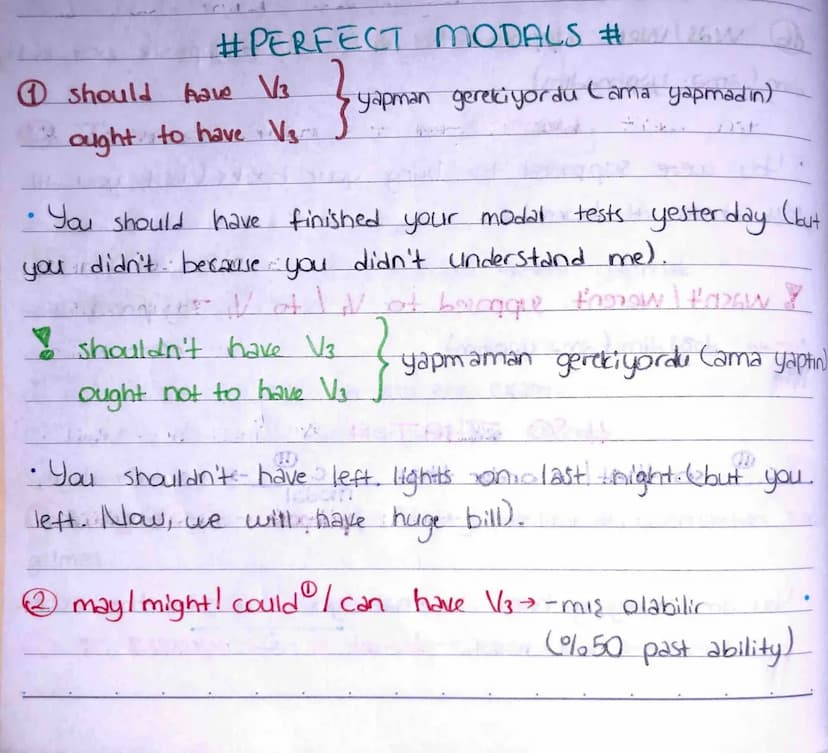 #PERFECT MODALS #
① should have V3 } yapman gerekiyordu (ama yapmadın)
ought to have V3
• You should have finished your modal tests yesterday (but
you didn't because you didn't understand me).
! shouldn't have V3 } yapmaman gerekiyordu (ama yaptın)
ought not to have V3
• You shouldn't have left lights on last night (but you
left. Now, we will have huge bill).
② may/might/could① / can have V3 → -mış olabilir
(%50 past ability)